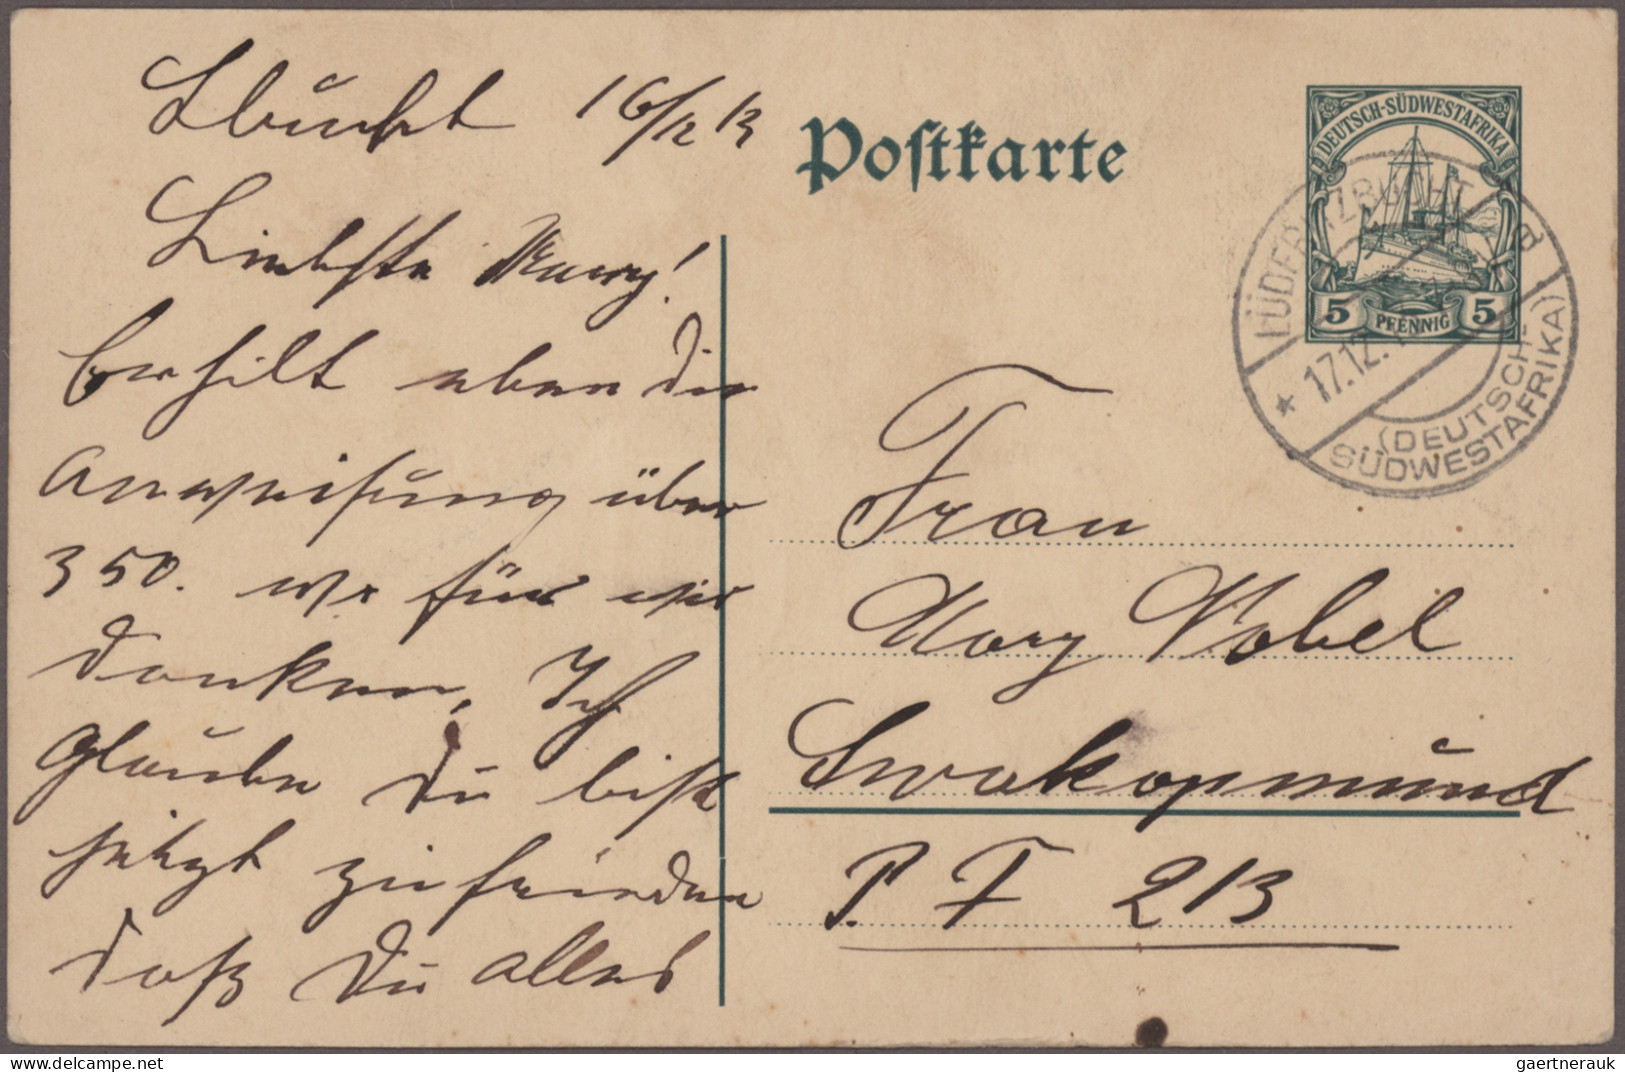 Lbucht 16/12 13
Liebste Mary!
Erhielt eben die
Anweisung über
350. M für wir
danken, Ich
glaube Du bist
jetzt zufrieden
daß Du alles
Postkarte
DEUTSCH-SÜDWESTAFRIKA
5 PFENNIG 5
LÜDERITZBUCHT a
* 17.12.
(DEUTSCH-
SÜDWESTAFRIKA)
Frau
Mary Vobel
Swakopmund
P. F 213
Delcampe.net
gaertnerauk